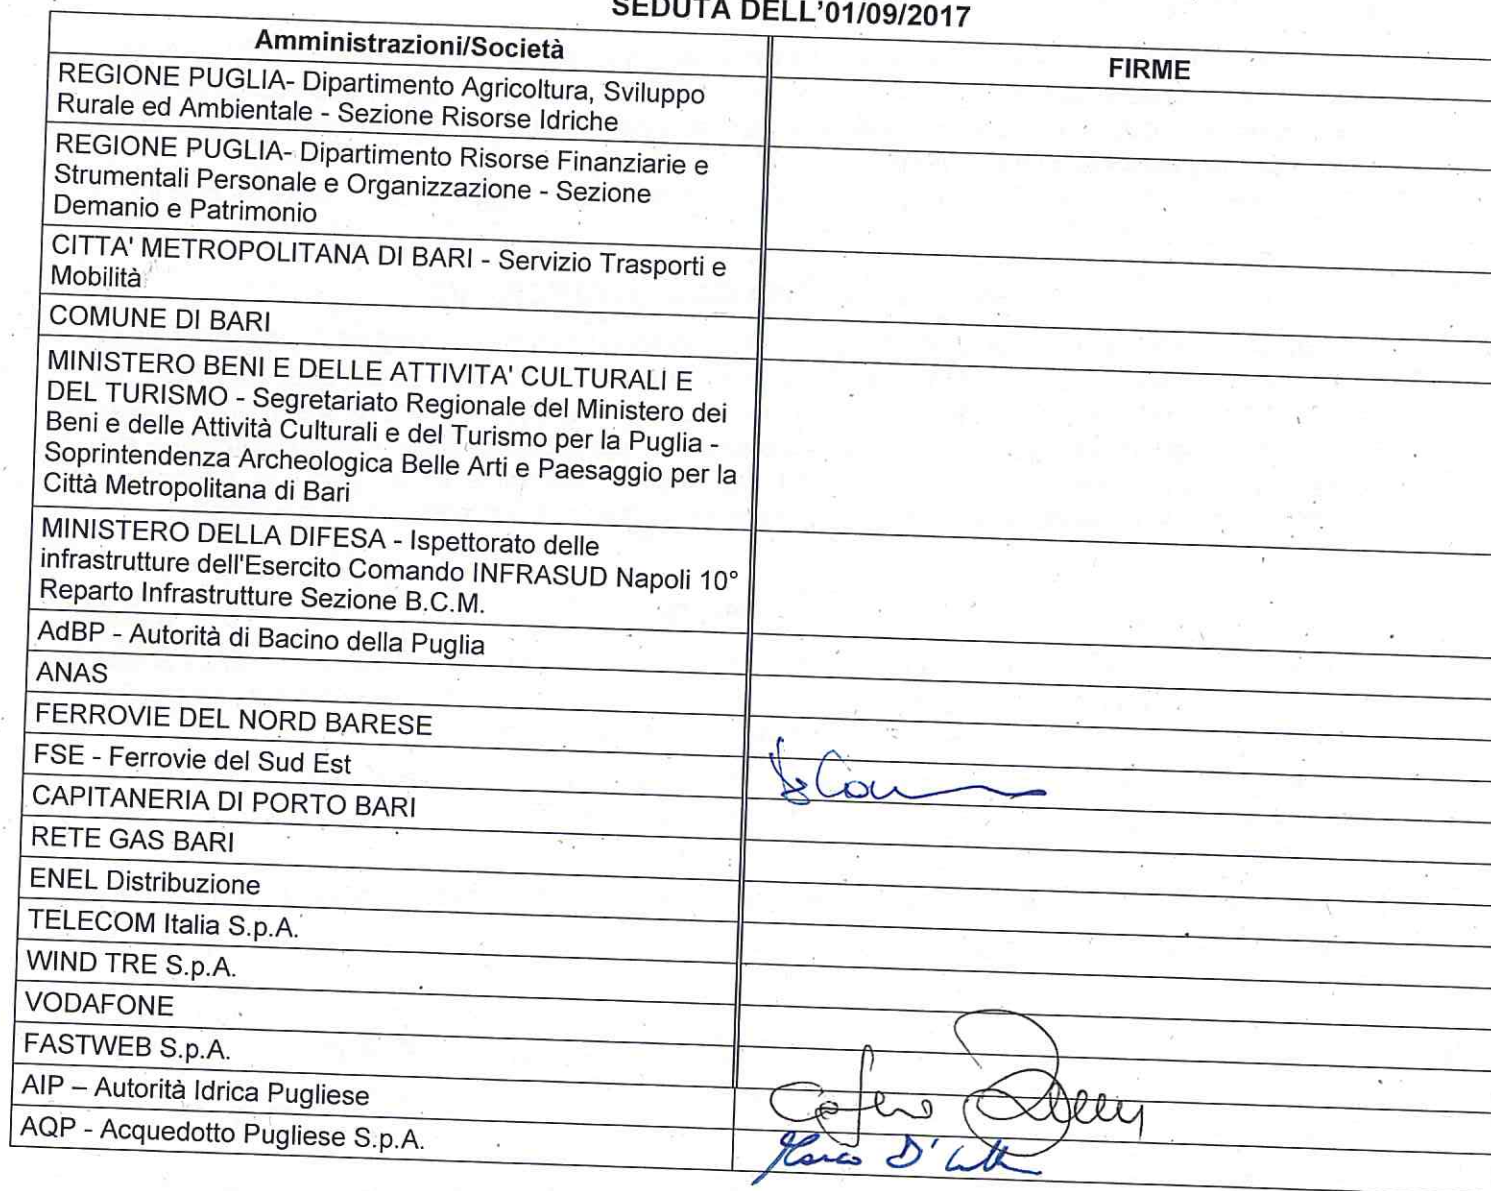 SEDUTA DELL'01/09/2017
Amministrazioni/Società
FIRME
REGIONE PUGLIA- Dipartimento Agricoltura, Sviluppo
Rurale ed Ambientale - Sezione Risorse Idriche
REGIONE PUGLIA- Dipartimento Risorse Finanziarie e
Strumentali Personale e Organizzazione - Sezione
Demanio e Patrimonio
CITTA' METROPOLITANA DI BARI - Servizio Trasporti e
Mobilità
COMUNE DI BARI
MINISTERO BENI E DELLE ATTIVITA' CULTURALI E
DEL TURISMO - Segretariato Regionale del Ministero dei
Beni e delle Attività Culturali e del Turismo per la Puglia -
Soprintendenza Archeologica Belle Arti e Paesaggio per la
Città Metropolitana di Bari
MINISTERO DELLA DIFESA - Ispettorato delle
infrastrutture dell'Esercito Comando INFRASUD Napoli 10°
Reparto Infrastrutture Sezione B.C.M.
AdBP - Autorità di Bacino della Puglia
ANAS
FERROVIE DEL NORD BARESE
FSE - Ferrovie del Sud Est
CAPITANERIA DI PORTO BARI
RETE GAS BARI
ENEL Distribuzione
TELECOM Italia S.p.A.
WIND TRE S.p.A.
VODAFONE
FASTWEB S.p.A.
AIP – Autorità Idrica Pugliese
AQP - Acquedotto Pugliese S.p.A.
Marco